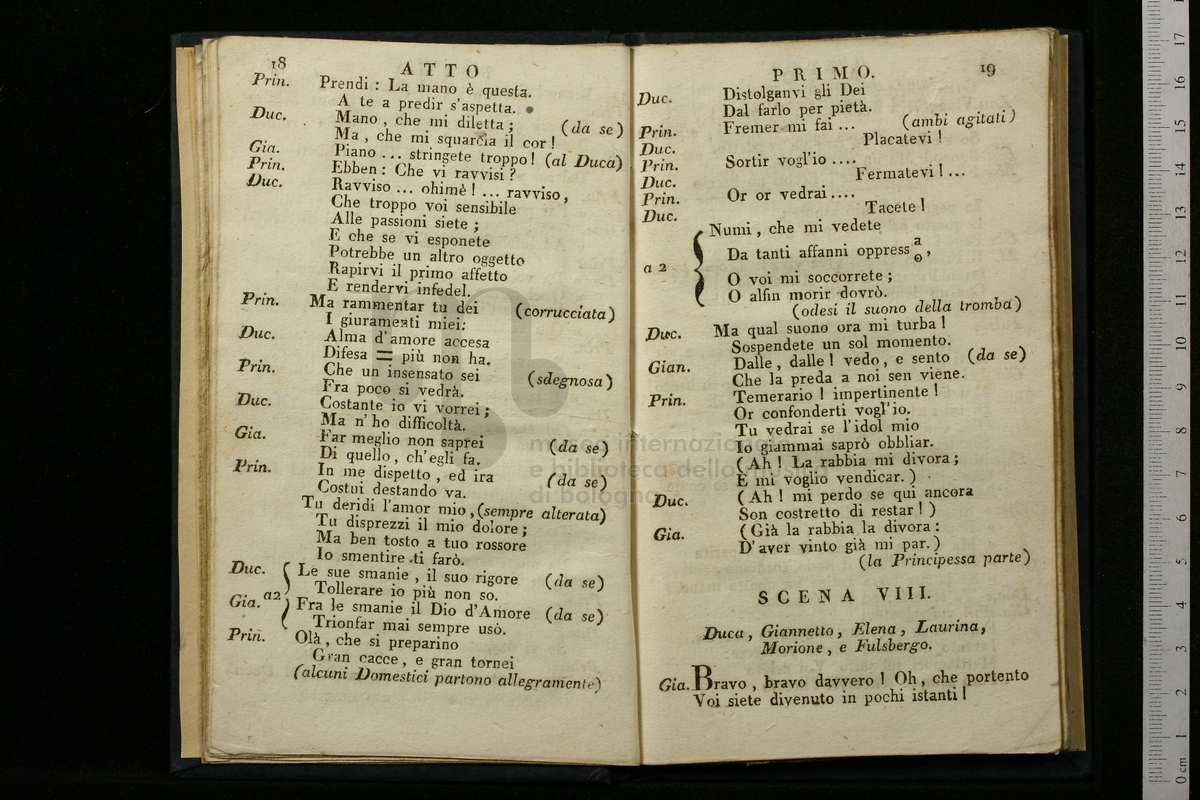 18
ATTO
Prin. Prendi : La mano è questa.
A te a predir s'aspetta.
Duc. Mano , che mi diletta ; (da se)
Ma , che mi squarcia il cor !
Gia. Piano ... stringete troppo ! (al Duca)
Prin. Ebben : Che vi ravvisi ?
Duc. Ravviso ... ohimè ! ... ravviso ,
Che troppo voi sensibile
Alle passioni siete ;
E che se vi esponete
Potrebbe un altro oggetto
Rapirvi il primo affetto
E rendervi infedel.
Prin. Ma rammentar tu dei (corrucciata)
I giuramenti miei:
Duc. Alma d'amore accesa
Difesa = più non ha.
Prin. Che un insensato sei (sdegnosa)
Fra poco si vedrà.
Duc. Costante io vi vorrei ;
Ma n'ho difficoltà.
Gia. Far meglio non saprei (da se)
Di quello , ch'egli fa.
Prin. In me dispetto , ed ira (da se)
Costui destando va.
Tu deridi l'amor mio , (sempre alterata)
Tu disprezzi il mio dolore ;
Ma ben tosto a tuo rossore
Io smentire ti farò.
Duc. Le sue smanie , il suo rigore (da se)
Tollerare io più non so.
a2
Gia. Fra le smanie il Dio d'Amore (da se)
Trionfar mai sempre usò.
Prin. Olà , che si preparino
Gran cacce , e gran tornei
(alcuni Domestici partono allegramente)
PRIMO.
19
Duc. Distolganvi gli Dei
Dal farlo per pietà.
Prin. Fremer mi fai ... (ambi agitati)
Duc. Placatevi !
Prin. Sortir vogl'io ....
Duc. Fermatevi ! ...
Prin. Or or vedrai ....
Duc. Tacete !
Numi , che mi vedete
Da tanti affanni oppress a o ,
a 2
O voi mi soccorrete ;
O alfin morir dovrò.
(odesi il suono della tromba)
Duc. Ma qual suono ora mi turba !
Sospendete un sol momento.
Gian. Dalle , dalle ! vedo , e sento (da se)
Che la preda a noi sen viene.
Prin. Temerario ! impertinente !
Or confonderti vogl'io.
Tu vedrai se l'idol mio
Io giammai saprò obbliar.
(Ah ! La rabbia mi divora ;
E mi voglio vendicar. )
Duc. (Ah ! mi perdo se qui ancora
Son costretto di restar ! )
Gia. (Già la rabbia la divora :
D'aver vinto già mi par. )
(la Principessa parte)
SCENA VIII.
Duca , Giannetto , Elena , Laurina ,
Morione , e Fulsbergo.
Gia. Bravo , bravo davvero ! Oh , che portento
Voi siete divenuto in pochi istanti !
museo internazionale
e biblioteca della musica
di bologna
0 cm 1 2 3 4 5 6 7 8 9 10 11 12 13 14 15 16 17